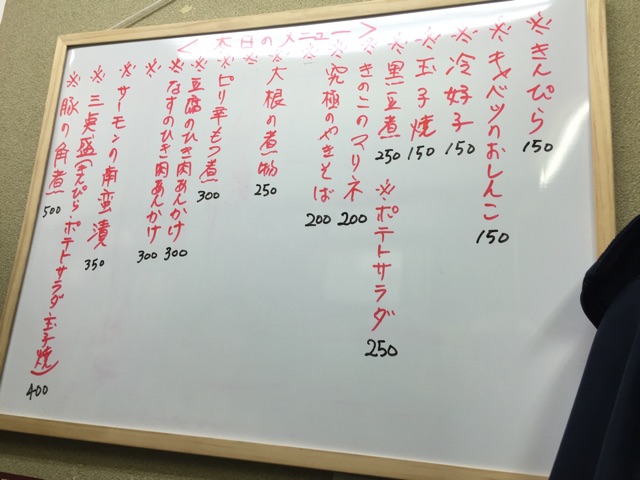 ＜本日のメニュー＞
※きんぴら 150
※キャベツのおしんこ 150
※冷好子 150
※玉子焼 150
※黒豆煮 250
※ポテトサラダ 250
※きのこのマリネ 200
※究極のやきそば 200
※大根の煮物 250
※ピリ辛もつ煮 300
※豆腐のひき肉あんかけ 300
※なすのひき肉あんかけ 300
※サーモンの南蛮漬 350
※三点盛(きんぴら・ポテトサラダ・玉子焼) 400
※豚の角煮 500